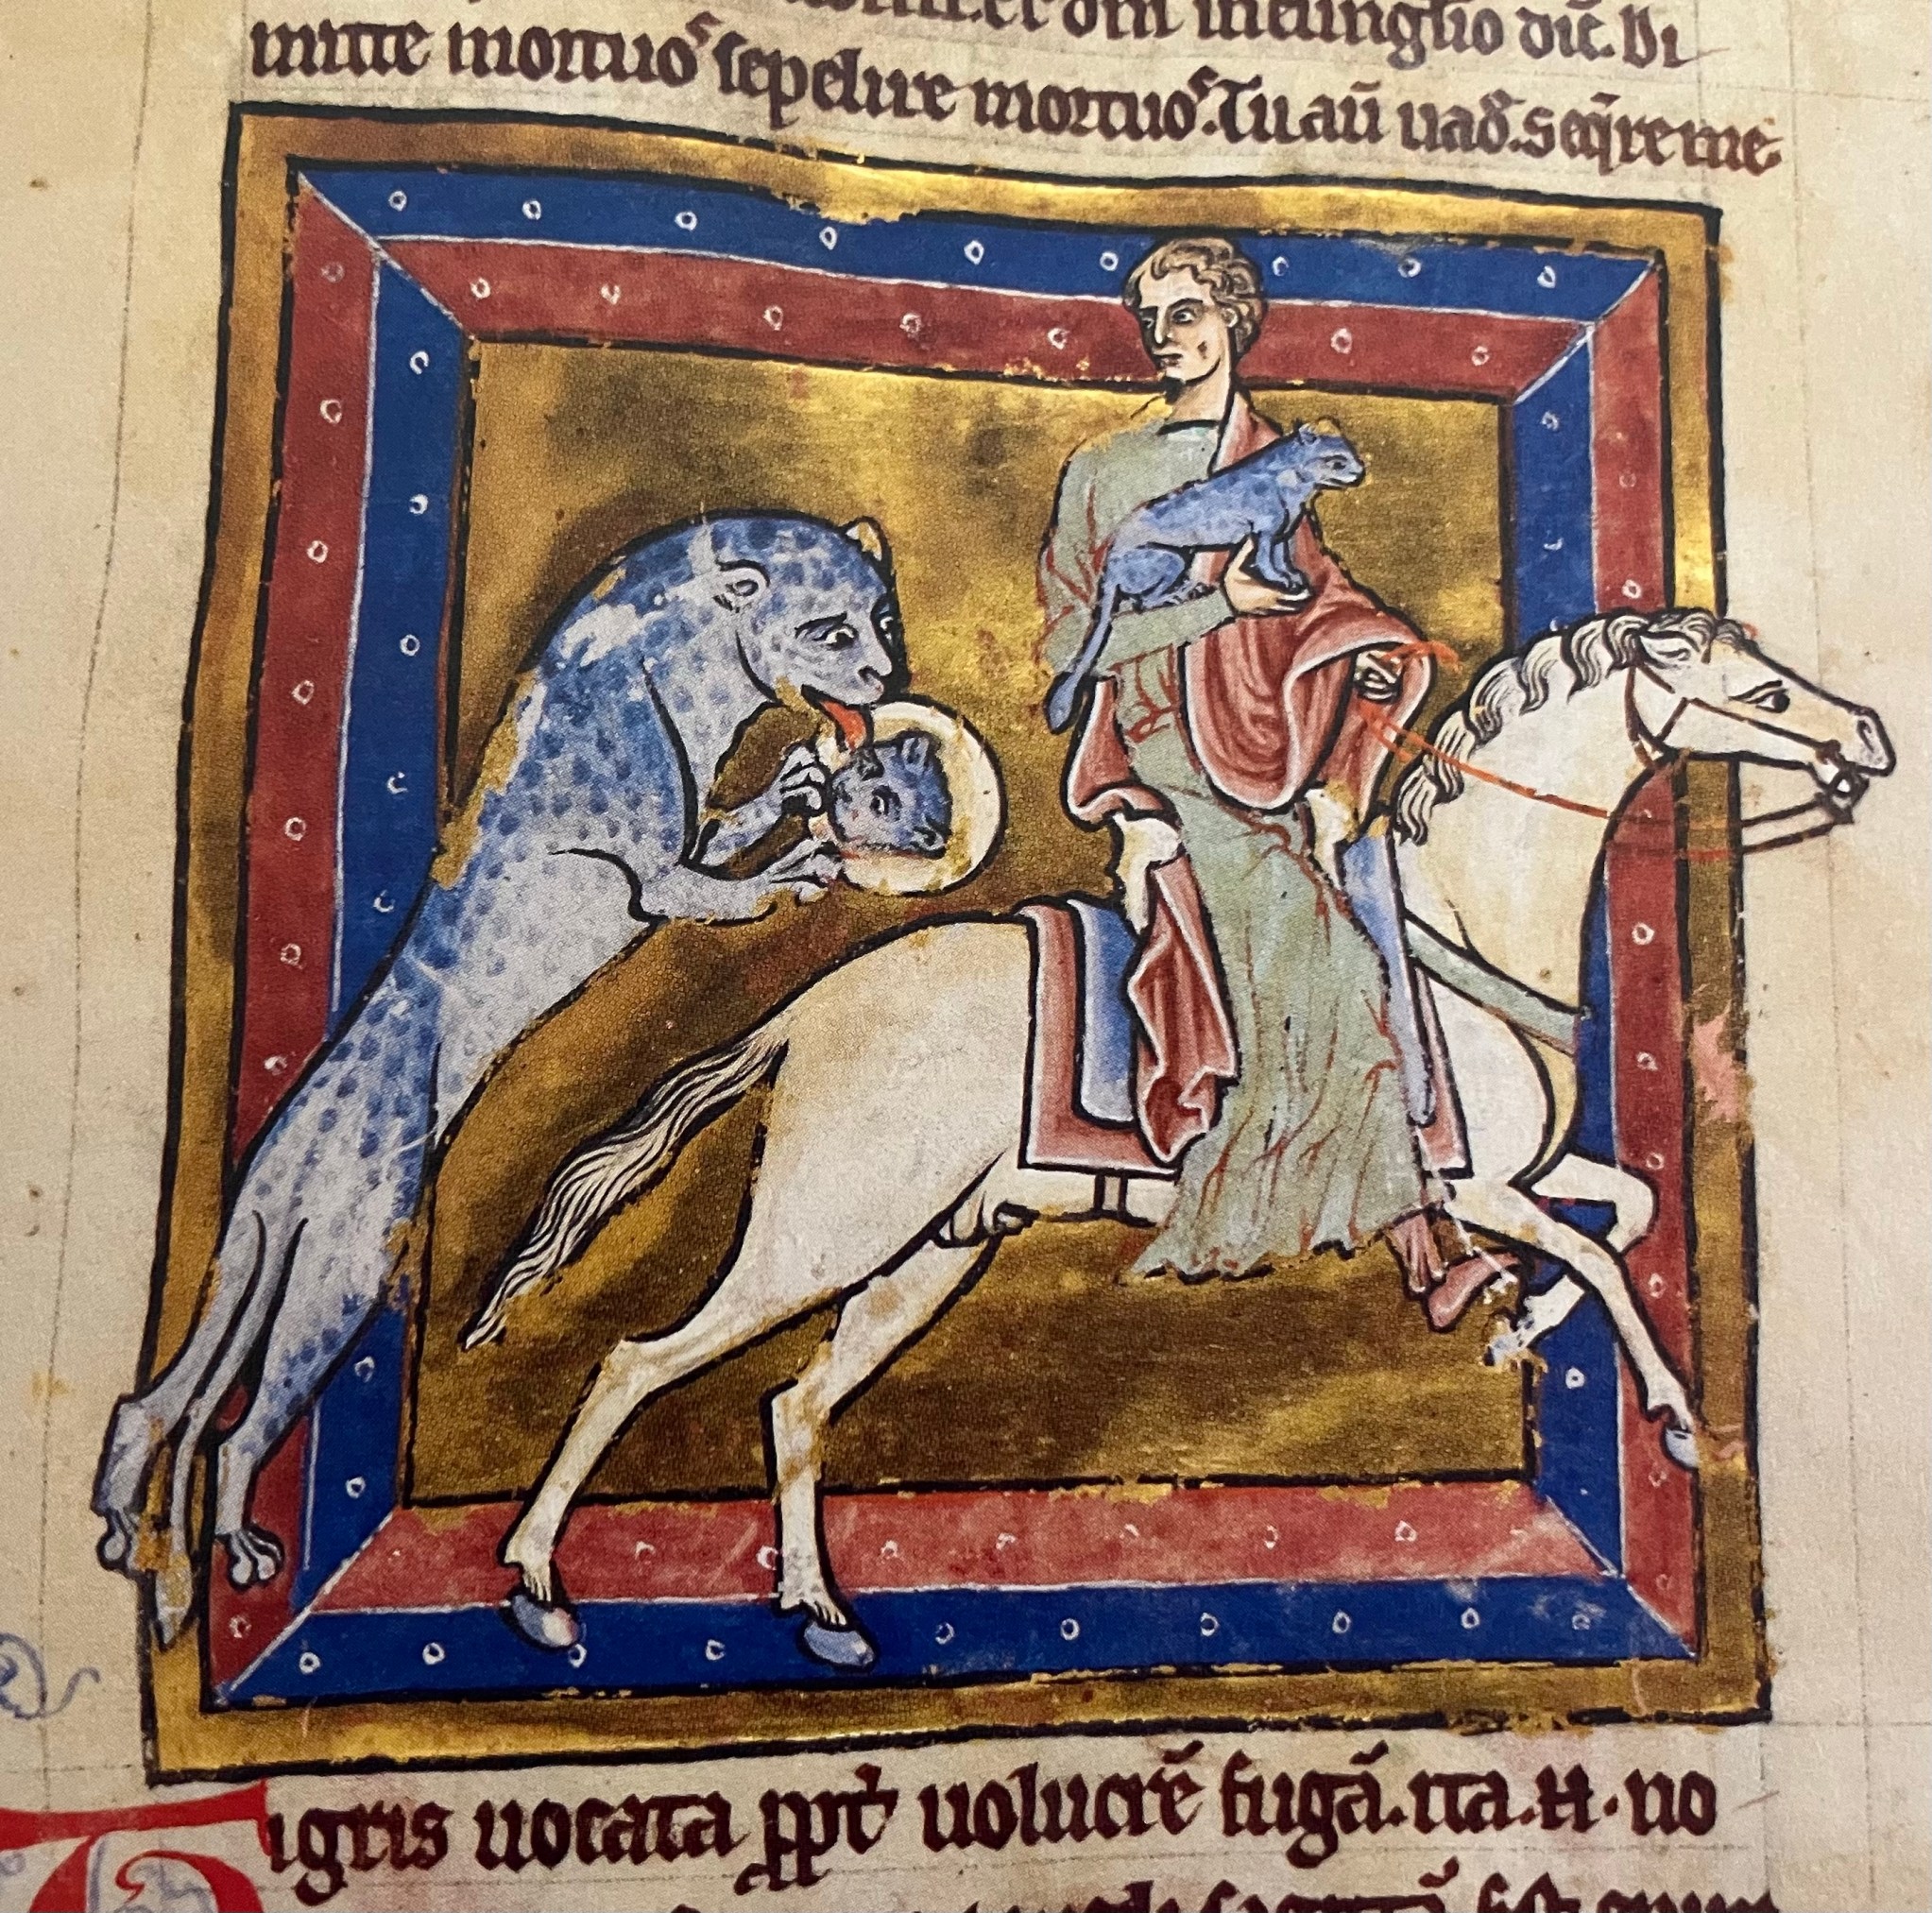 dn̄i in euanglio dic̄. Di
mitte mortuos sepelire mortuos. Tu aū uad̄. seq̄re me.
Tigris uocata ꝓpt̄ uolucrē fugā. ita .n. no